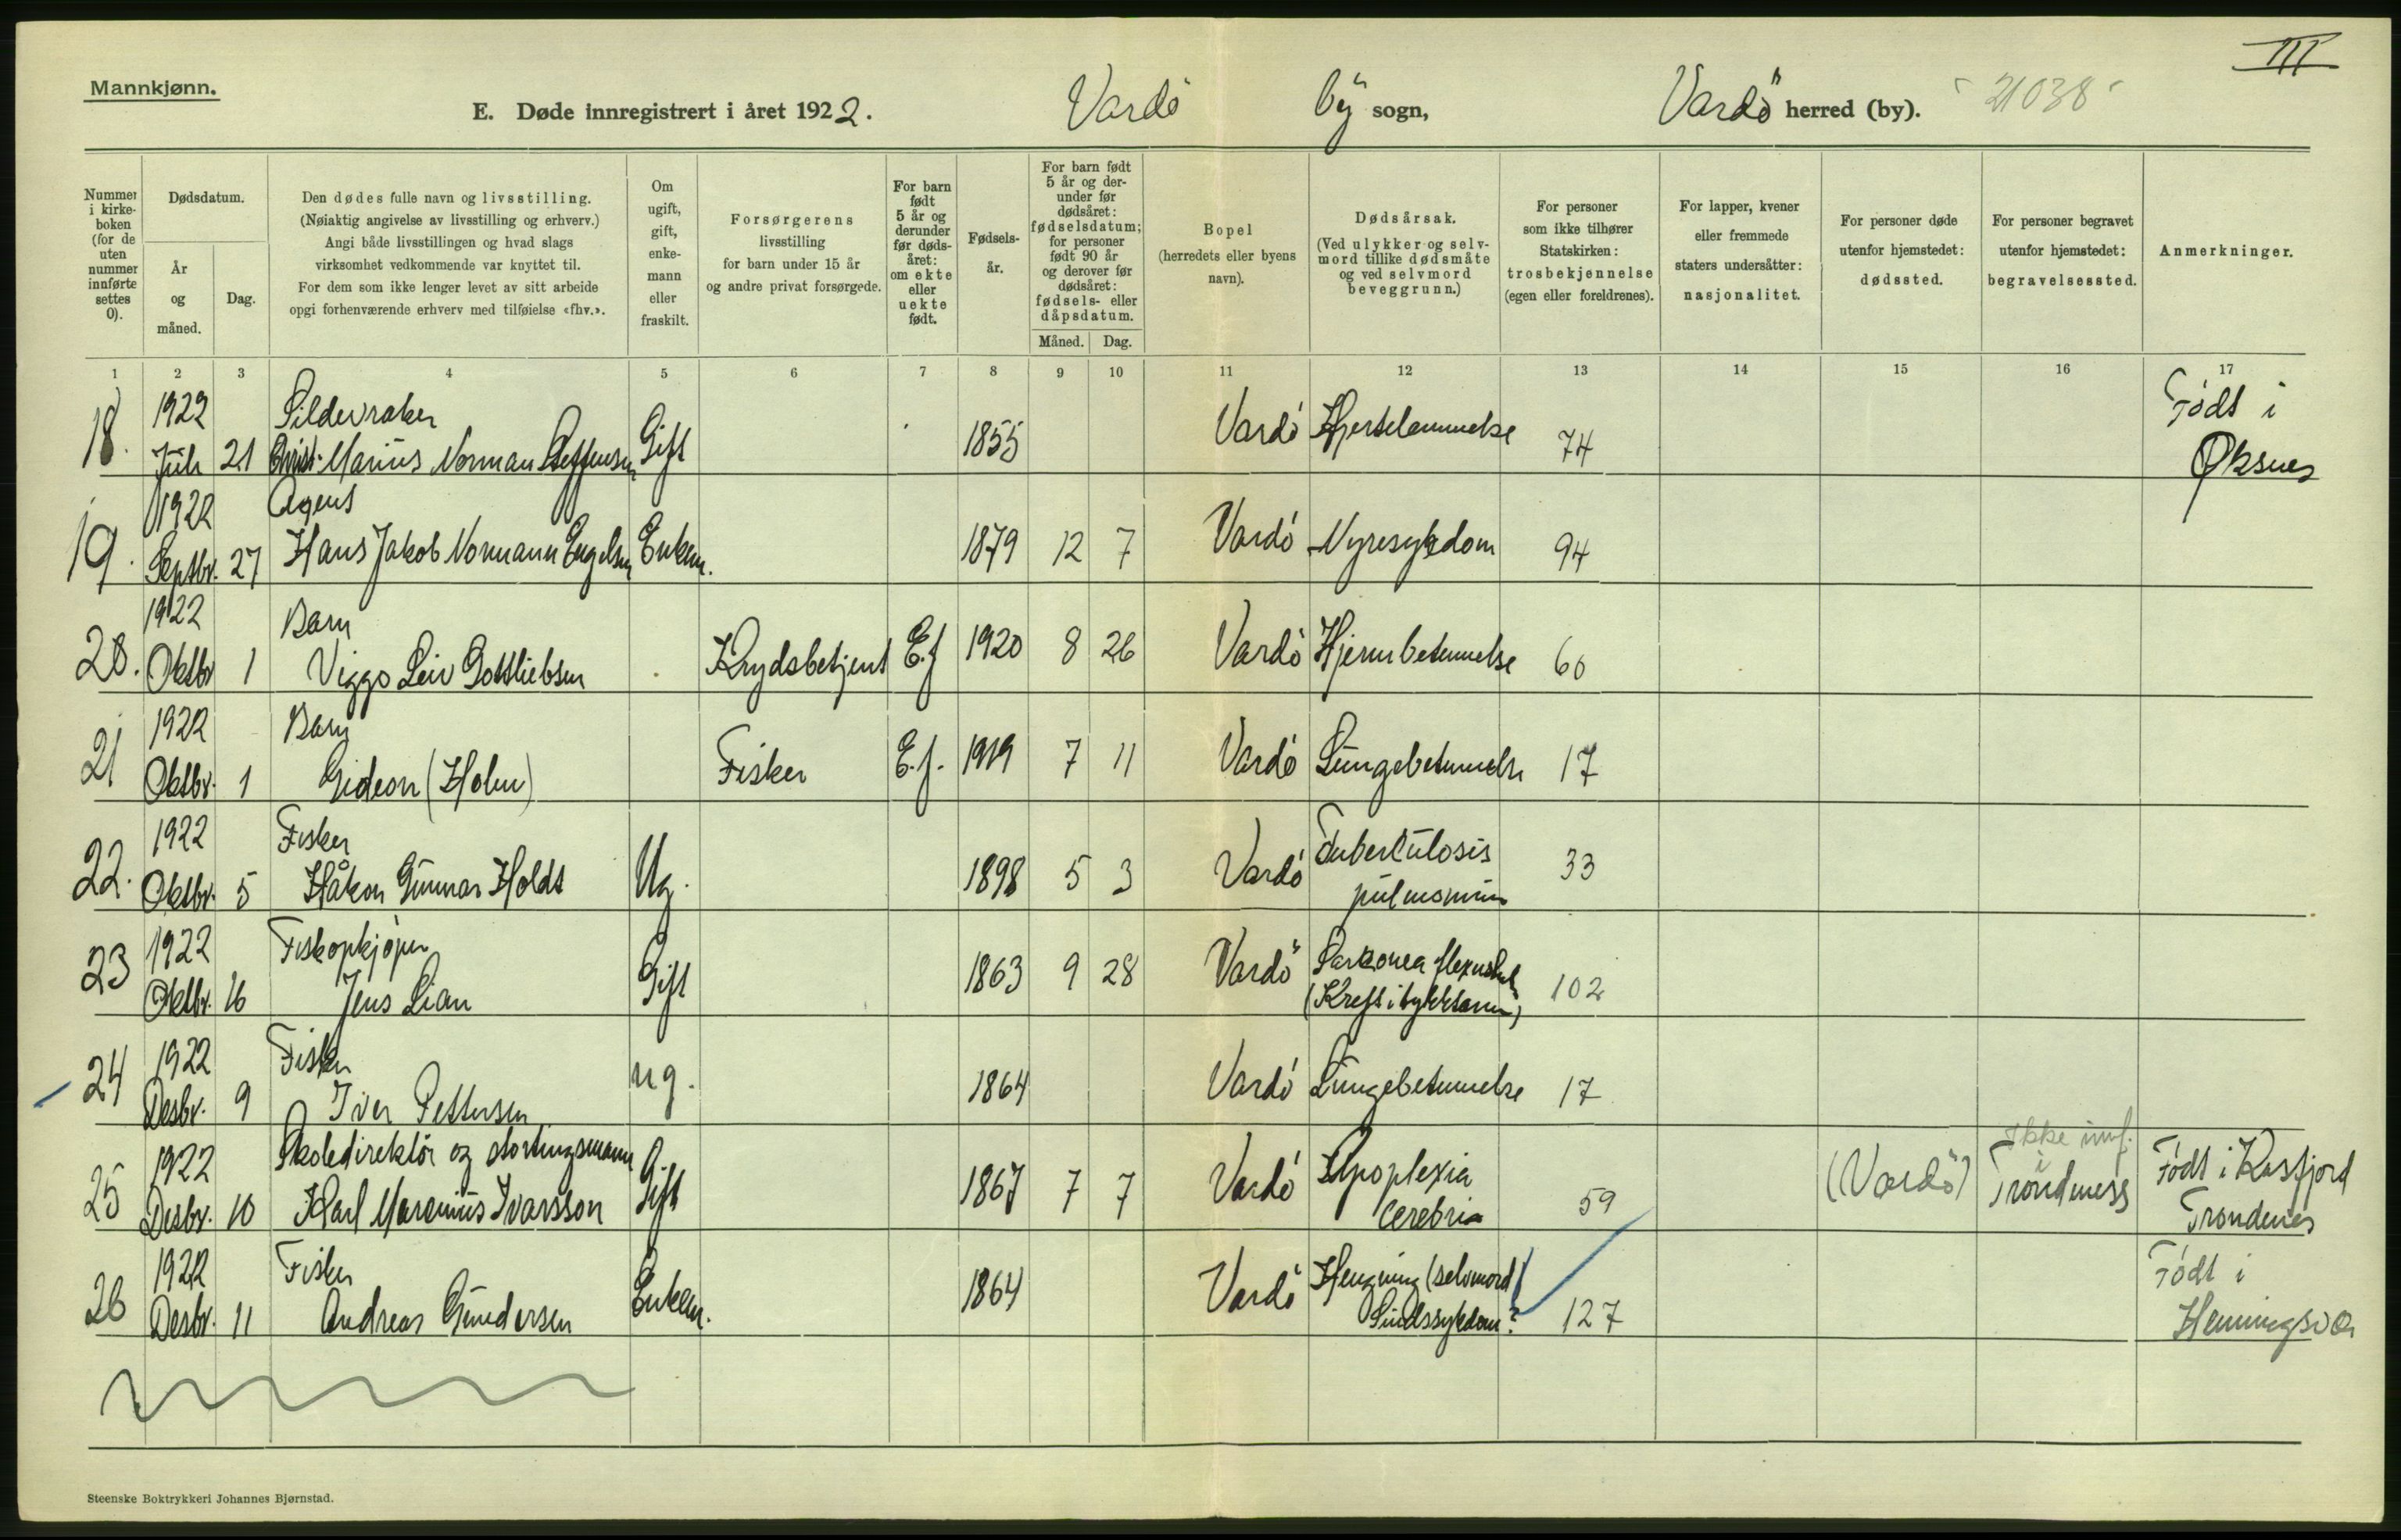 III
Mannkjønn.
E. Døde innregistrert i året 1922. Vardö by sogn, Vardö herred (by). 21038
Nummer i kirke-boken (for de uten nummer innførte settes 0).
Dødsdatum.
År og måned.
Dag.
Den dødes fulle navn og livsstilling.
(Nøiaktig angivelse av livsstilling og erhverv.)
Angi både livsstillingen og hvad slags
virksomhet vedkommende var knyttet til.
For dem som ikke lenger levet av sitt arbeide
opgi forhenværende erhverv med tilføielse «fhv.».
Om ugift, gift, enke-mann eller fraskilt.
Forsørgerens
livsstilling
for barn under 15 år
og andre privat forsørgede.
For barn født 5 år og derunder før døds-året: om ekte eller uekte født.
Fødsels-år.
For barn født 5 år og der-under før dødsåret: fødselsdatum; for personer født 90 år og derover før dødsåret: fødsels- eller dåpsdatum.
Måned. Dag.
Bopel
(herredets eller byens
navn).
Dødsårsak.
(Ved ulykker og selv-
mord tillike dødsmåte
og ved selvmord
beveggrunn.)
For personer
som ikke tilhører
Statskirken:
trosbekjennelse
(egen eller foreldrenes).
For lapper, kvener
eller fremmede
staters undersåtter:
nasjonalitet.
For personer døde
utenfor hjemstedet:
dødssted.
For personer begravet
utenfor hjemstedet:
begravelsessted.
Anmerkninger.
1 2 3 4 5 6 7 8 9 10 11 12 13 14 15 16 17
1922 Sildevraker Født i
18. Juli 21 Christ. Marius Norman Steffensen Gift 1855 Vardö Hjertelammelse 74 Øksnes
1922 Agent
19. Septbr. 27 Hans Jakob Normann Engelsen Enkem. 1879 12 7 Vardö Nyresykdom 94
1922 Barn
20. Oktbr 1 Viggo Leiv Gottliebsen Krydsbetjent E.f 1920 8 26 Vardö Hjernebetennelse 60
1922 Barn
21 Oktbr. 1 Gideon (Holm) Fisker E.f. 1919 7 11 Vardö Lungebetennelse 17
1922 Fisker Tuberculosis
22. Oktbr. 5 Håkon Gunnar Holdt Ug. 1898 5 3 Vardö pulmonum 33
1922 Fiskopkjøper
23 Oktbr. 16 Jens Lian Gift 1863 9 28 Vardö (Kreft i tykktarm) 102
1922 Fisker
24 Desbr. 9 Iver Pettersen ug. 1864 Vardö Lungebetennelse 17
1922 Skoledirektør og stortingsmann Apoplexia Ikke innf. i Født i Kasfjord
25 Desbr. 10 Karl Marenius Ivarsson Gift 1867 7 7 Vardö cerebri 59 (Vardö) Trondenes Trondenes
1922 Fisker Hengning (selvmord) Født i
26 Desbr. 11 Andreas Gundersen Enkem. 1864 Vardö Sindssykdom? 127 Henningsvær
Steenske Boktrykkeri Johannes Bjørnstad.